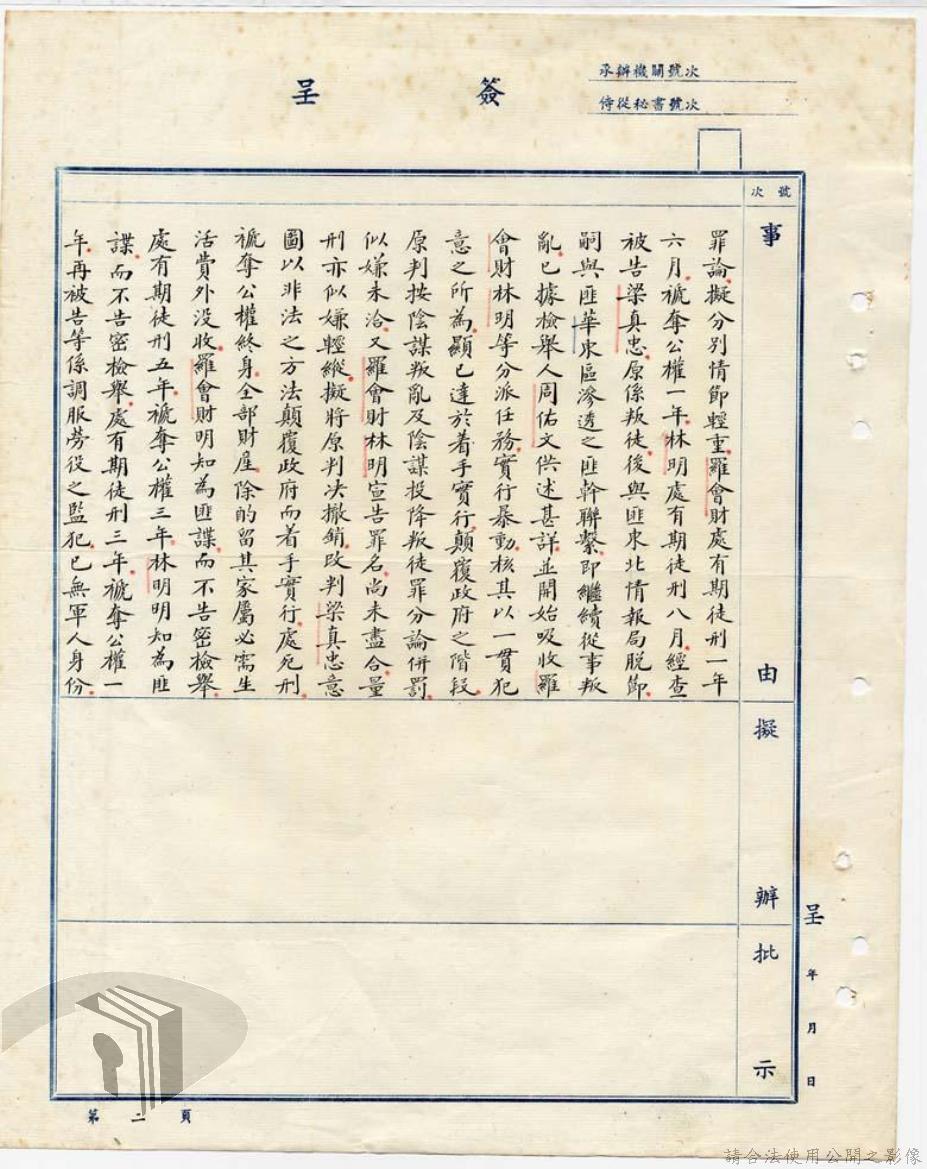 承辦機關號次
侍從秘書號次
簽呈
號次
事由
罪論擬分別情節輕重羅會財處有期徒刑一年
六月褫奪公權一年林明處有期徒刑八月經查
被告梁真忠原係叛徒後與匪東北情報局脫節
嗣與匪華東區滲透之匪幹聯繫即繼續從事叛
亂已據檢舉人周佑文供述甚詳並開始吸收羅
會財林明等分派任務實行暴動核其以一貫犯
意之所為顯已達於着手實行顛覆政府之階段
原判按陰謀叛亂及陰謀投降叛徒罪分論併罰
似嫌未洽又羅會財林明宣告罪名尚未盡合量
刑亦似嫌輕縱擬將原判決撤銷改判梁真忠意
圖以非法之方法顛覆政府而着手實行處死刑
褫奪公權終身全部財產除酌留其家屬必需生
活費外沒收羅會財明知為匪諜而不告密檢舉
處有期徒刑五年褫奪公權三年林明明知為匪
諜而不告密檢舉處有期徒刑三年褫奪公權一
年再被告等係調服勞役之監犯已無軍人身份
擬辦
批示
呈 年 月 日
第二頁
請合法使用公開之影像